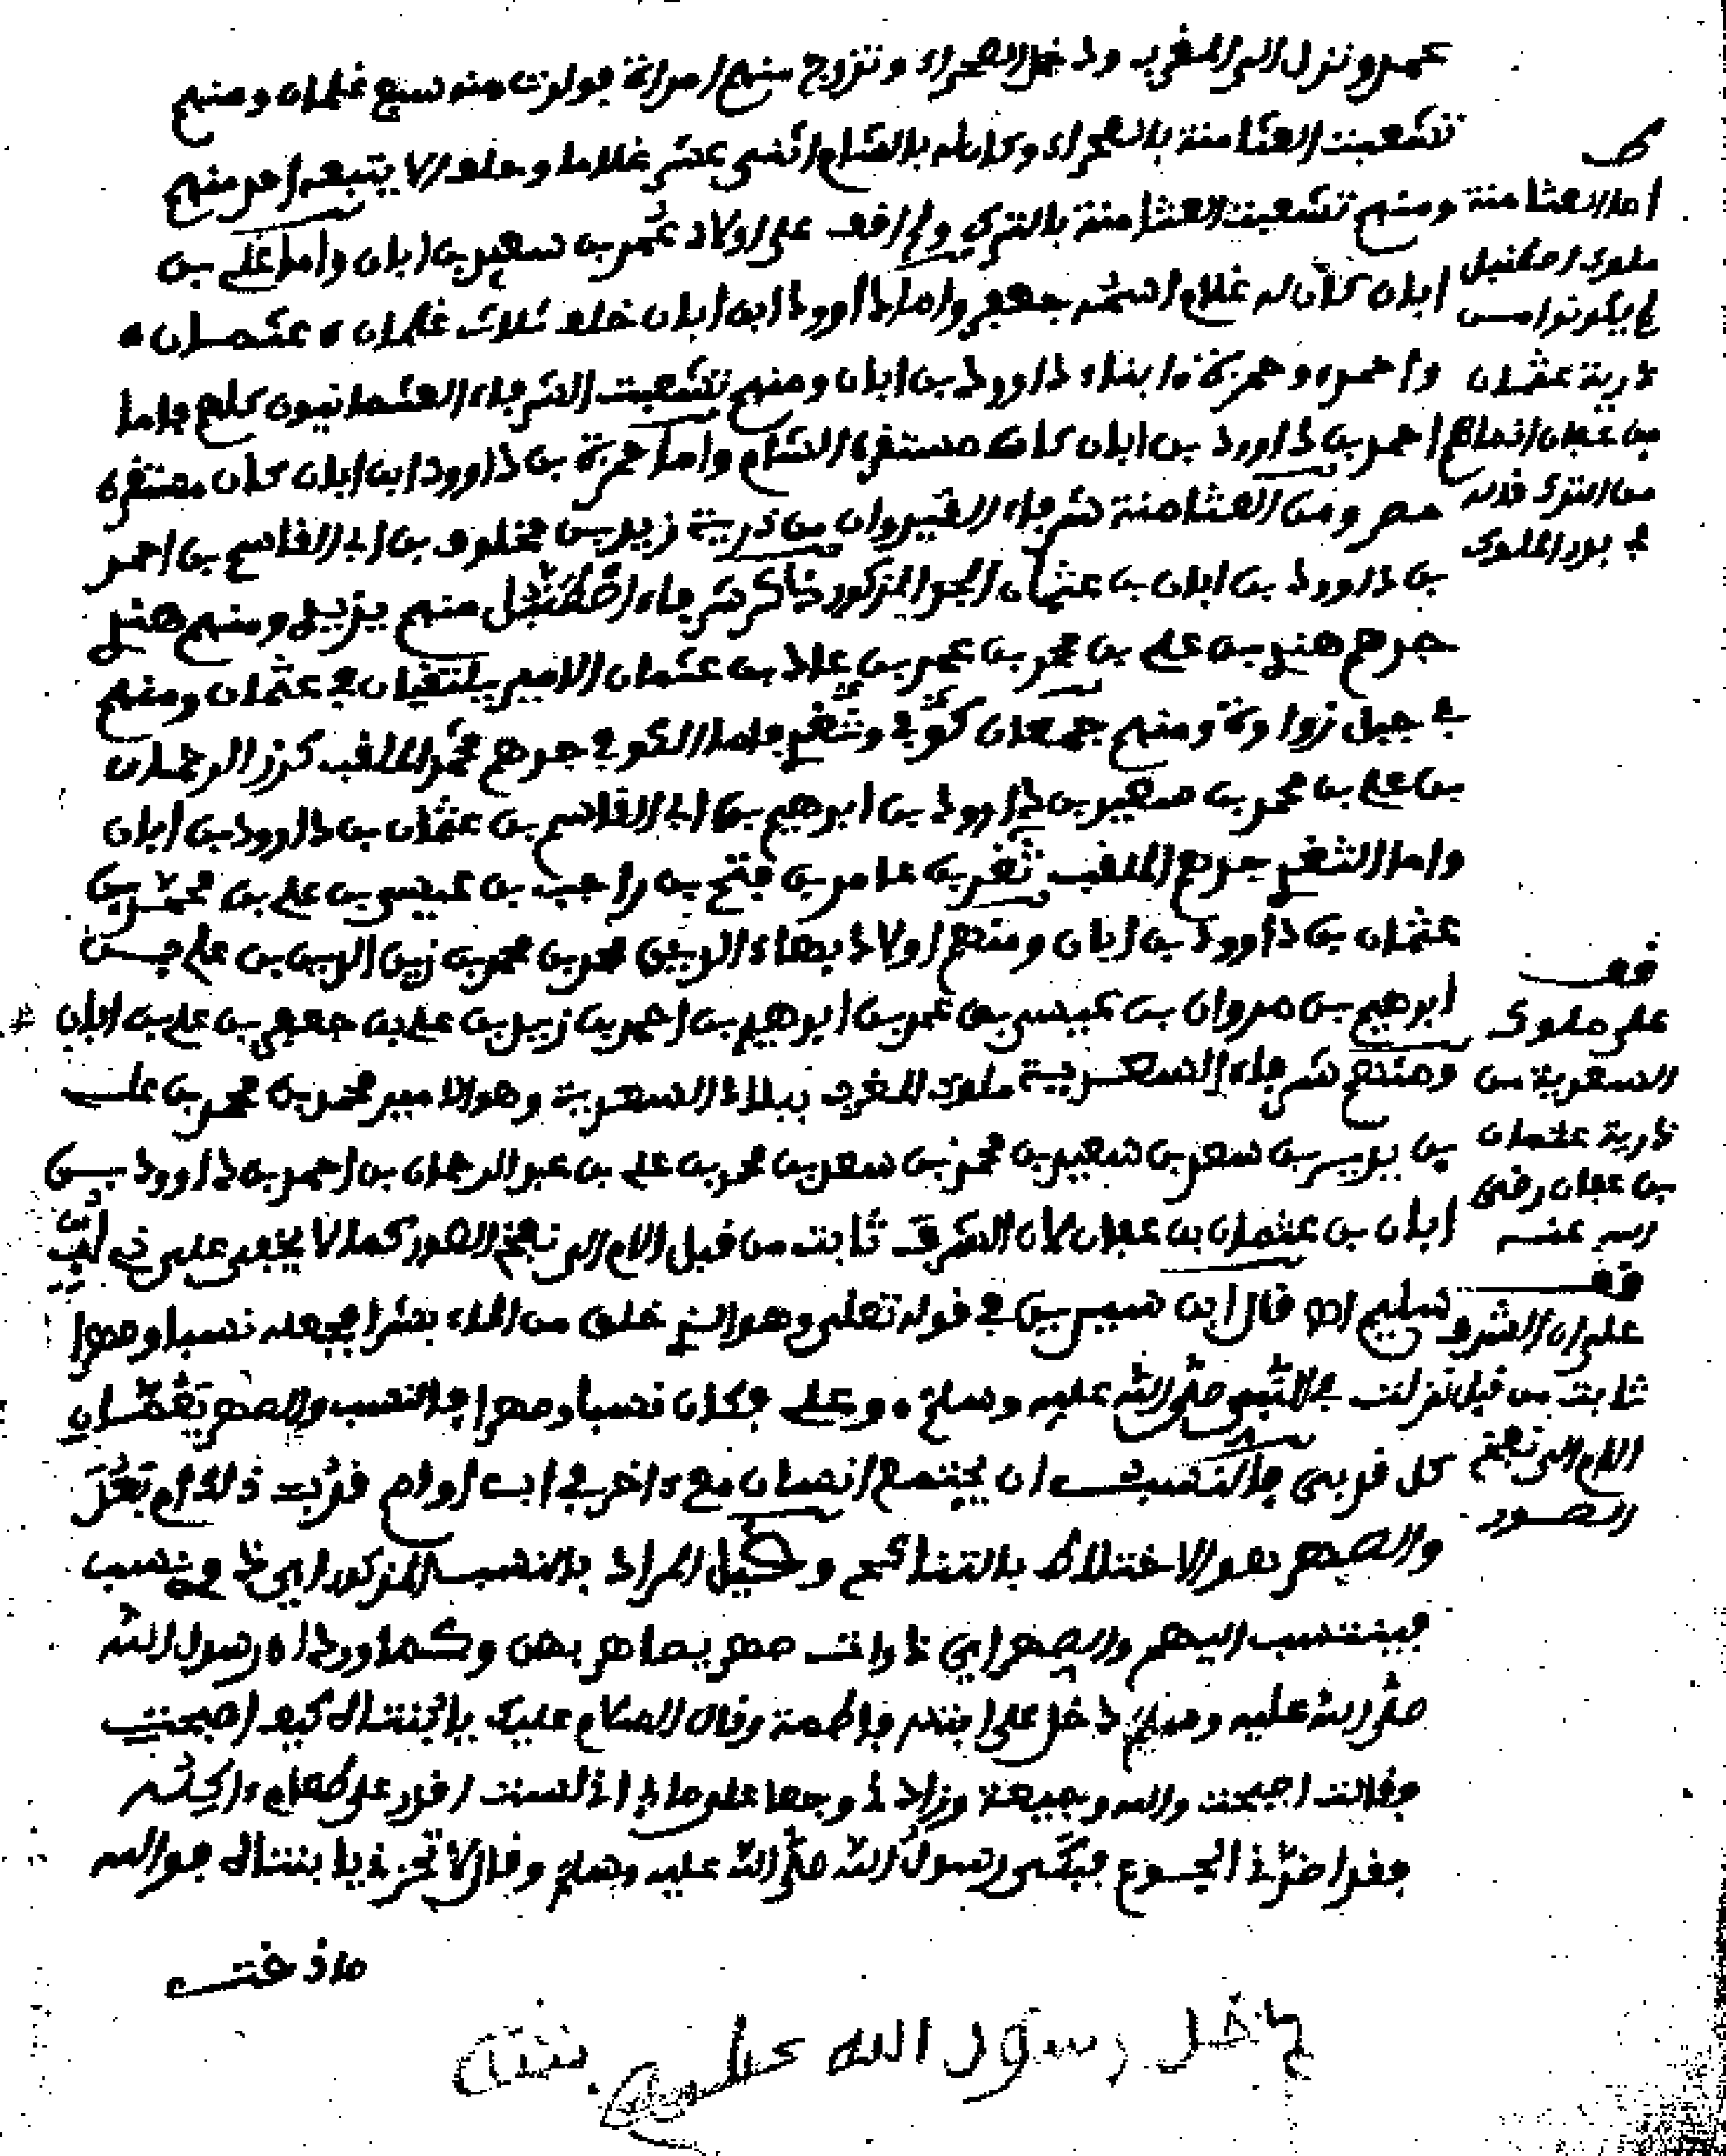 عمر ونزل الى المغرب ودخل الصحراء وتزوج منهم امراة فولدت منه سبع غلمان ومنهم
تشعبت العثامنة بالصحراء وكان له بالشام اثنى عشر غلاما وخلف لا يتبعه احد منهم
اما العثامنة ومنهم تشعبت العثامنة بالترك ولم اقف على اولاد عمر بن سعيد بن ابان واما على بن
ابان كان له غلام اسمه جعفر واما داوود ابن ابان خلف ثلاث غلمان عثمان
واحمد وحمزة ابناء داوود بن ابان ومنهم تشعبت الشرفاء العثمانيون كلهم فاما
احمد بن داوود بن ابان كان مستقره الشام واما حمزة بن داوود ابن ابان كان مستقره
مصر ومن العثامنة شرفاء القيروان من ذرية زيد بن مخلوف بن ابى القاسم بن احمد
بن داوود بن ابان بن عثمان الجد المذكور ذكر شرفاء منهم يزيد ومنهم هنيل
جدهم هنيل بن على بن محمد بن عمر بن علاد بن عثمان الامير يلتقيان فى عثمان ومنهم
فى جبل زواوة ومنهم جمعان كوفى وثغر فاما الكوفى جدهم محمد الملقب كرز الرحمان
بن على بن محمد بن سعيد بن داوود بن ابرهيم بن ابى القاسم بن عثمان بن داوود بن ابان
واما الثغر جدهم الملقب ثغر بن عامر بن فتح بن راجب بن عيسى بن على بن محمد بن
عثمان بن داوود بن ابان ومنهم اولاد بهاء الدين محمد بن محمد بن زين الدين بن على بن
ابرهيم بن مروان بن عيسى بن عمر بن ابرهيم بن احمد بن زيد بن على بن جعفر بن على بن ابان
ومنهم شرفاء السعدية ملوك المغرب ببلاد السعدية وهو الامير محمد بن محمد بن على
بن يديـر بن سعد بن سعيد بن محمد بن سعد بن محمد بن على بن عبد الرحمان بن احمد بن داوود بن
ابان بن عثمان بن عفان لان الشرف ثابت من قبل الام الى نفخ الصور كما لا يخفى على ذى لب
سليم اهـ قال ابن سيرين فى قوله تعلى وهو الذى خلق من الماء بشرا فجعله نسبا وصهرا
نزلت فى النبى صلى الله عليه وسلم وعلى فكان نسبا وصهرا فالنسب والصهر يعمان
كل قربى فالنسب ان يجتمع انسان مع ءاخر فى اب او ام قربت ذلك ام بعدت
والصهر هو الاختلاط بالتناكح وقيل المراد بالنسب المذكور اى ذو نسب
فينتسب اليهم والصهر اى ذوات صهر يصاهر بهن وكما ورد ان رسول الله
صلى الله عليه وسلم دخل على ابنته فاطمة وقال السلام عليك يا ابنتاه كيف اصبحت
فقالت اصبحت والله وجيعة وزاد وجعا على ما بى انى لست اقدر على طعام ءاكله
فقد اضر بى الجوع فبكى رسول الله صلى الله عليه وسلم وقال لا تحزنى يا بنتاه فوالله
ما ذقت
ملوك
لم يكونوا من
ذرية عثمان
بن عفان انما هم
من الترك قاله
فى الملوك
قف
على ملوك
السعدية من
ذرية عثمان
بن عفان رضى
الله عنه
قف
على ان الشرف
ثابت من قبل
الام الى نفخ
الصور
دخل رسول الله على بنته